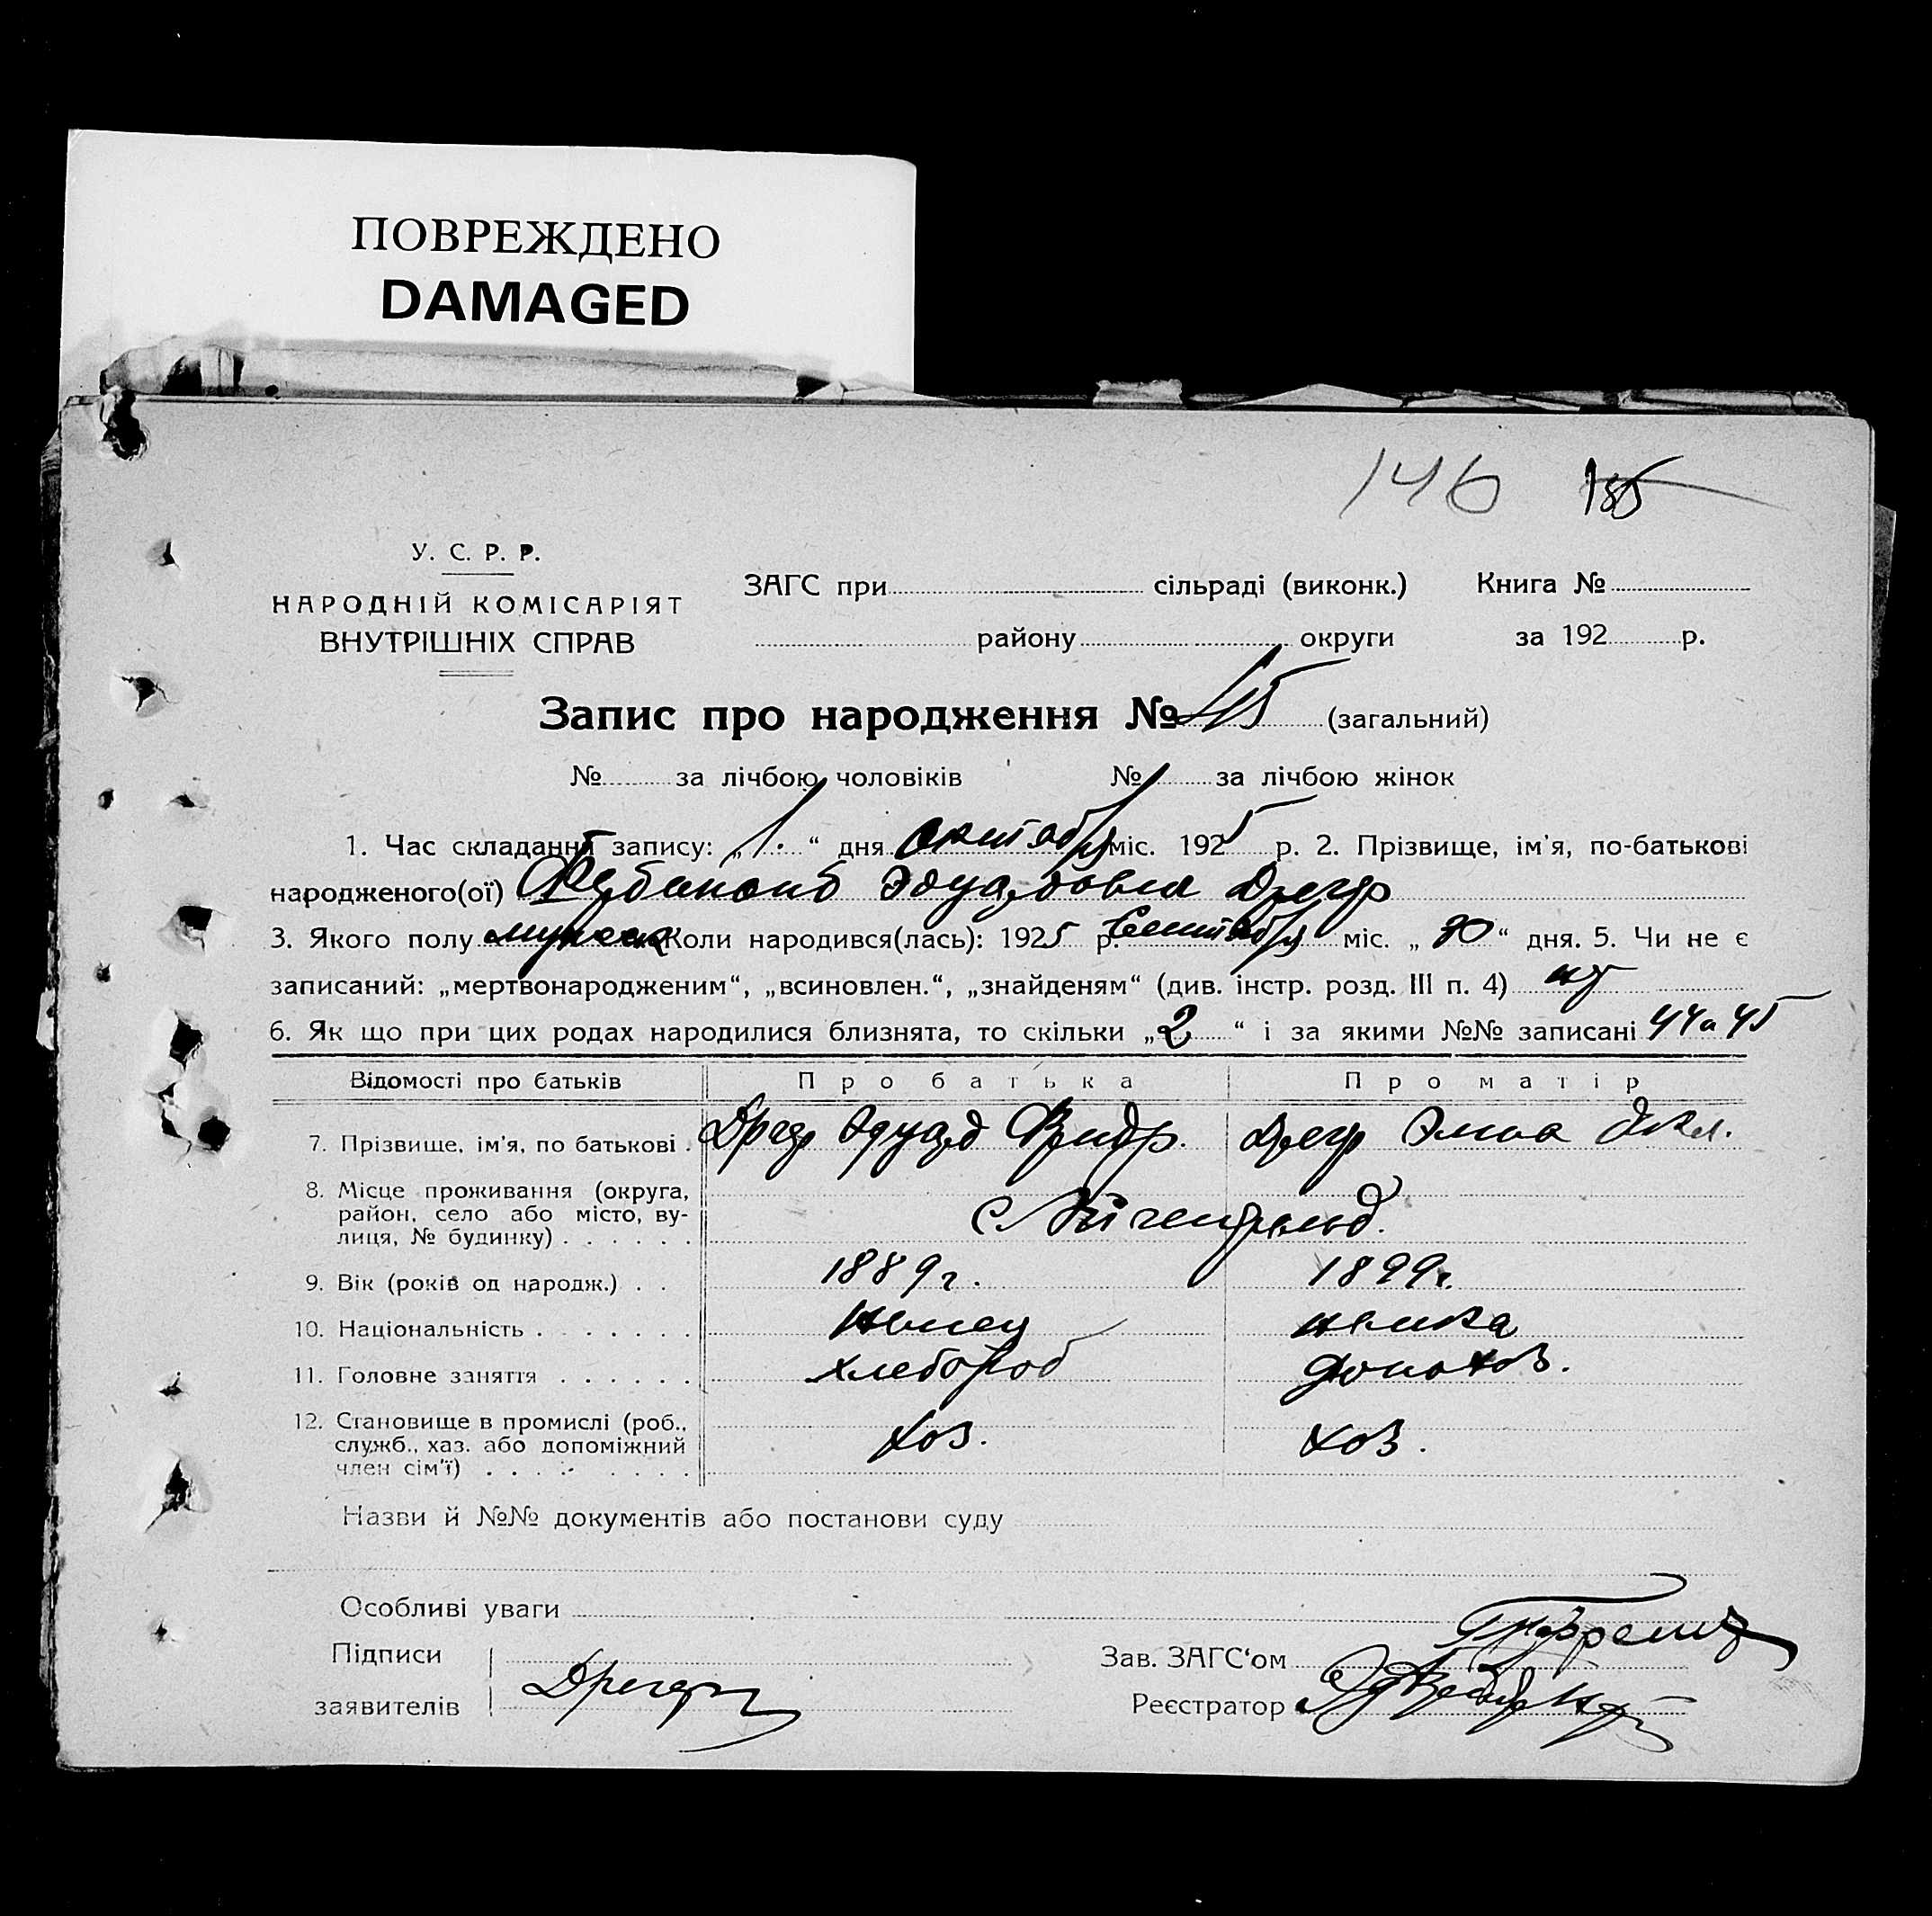 ПОВРЕЖДЕНО
DAMAGED
146 185
У. С. Р. Р.
НАРОДНІЙ КОМІСАРІЯТ
ВНУТРІШНІХ СПРАВ
ЗАГС при сільраді (виконк.) Книга №
району округи за 192 р.
Запис про народження № 45 (загальний)
№ за лічбою чоловіків № за лічбою жінок
1. Час складання запису: „1.“ дня октября міс. 1925 р. 2. Прізвище, ім'я, по-батькові
народженого(ої) Эдуардовна Дрегр
3. Якого полу Коли народився(лась): 1925 р. Сентября міс. „30“ дня. 5. Чи не є
записаний: „мертвонародженим“, „всиновлен.“, „знайденям“ (див. інстр. розд. III п. 4)
6. Як що при цих родах народилися близнята, то скільки „2“ і за якими №№ записані 44 а 45
Відомості про батьків Про батька Про матір
7. Прізвище, ім'я, по батькові . Эдуард Фридр. Дрегр
8. Місце проживання (округа,
район, село або місто, ву-
лиця, № будинку) . . . . . . с
9. Вік (років од народж.) . . 1889г. 1899г.
10. Національність . . . . . . . Немец немка
11. Головне заняття . . . . . . хлебороб домохоз.
12. Становище в промислі (роб.,
служб., хаз. або допоміжний
член сім'ї) . . . . . . . . хоз. хоз.
Назви й №№ документів або постанови суду
Особливі уваги
Підписи
заявителів
Зав. ЗАГС'ом
Реєстратор